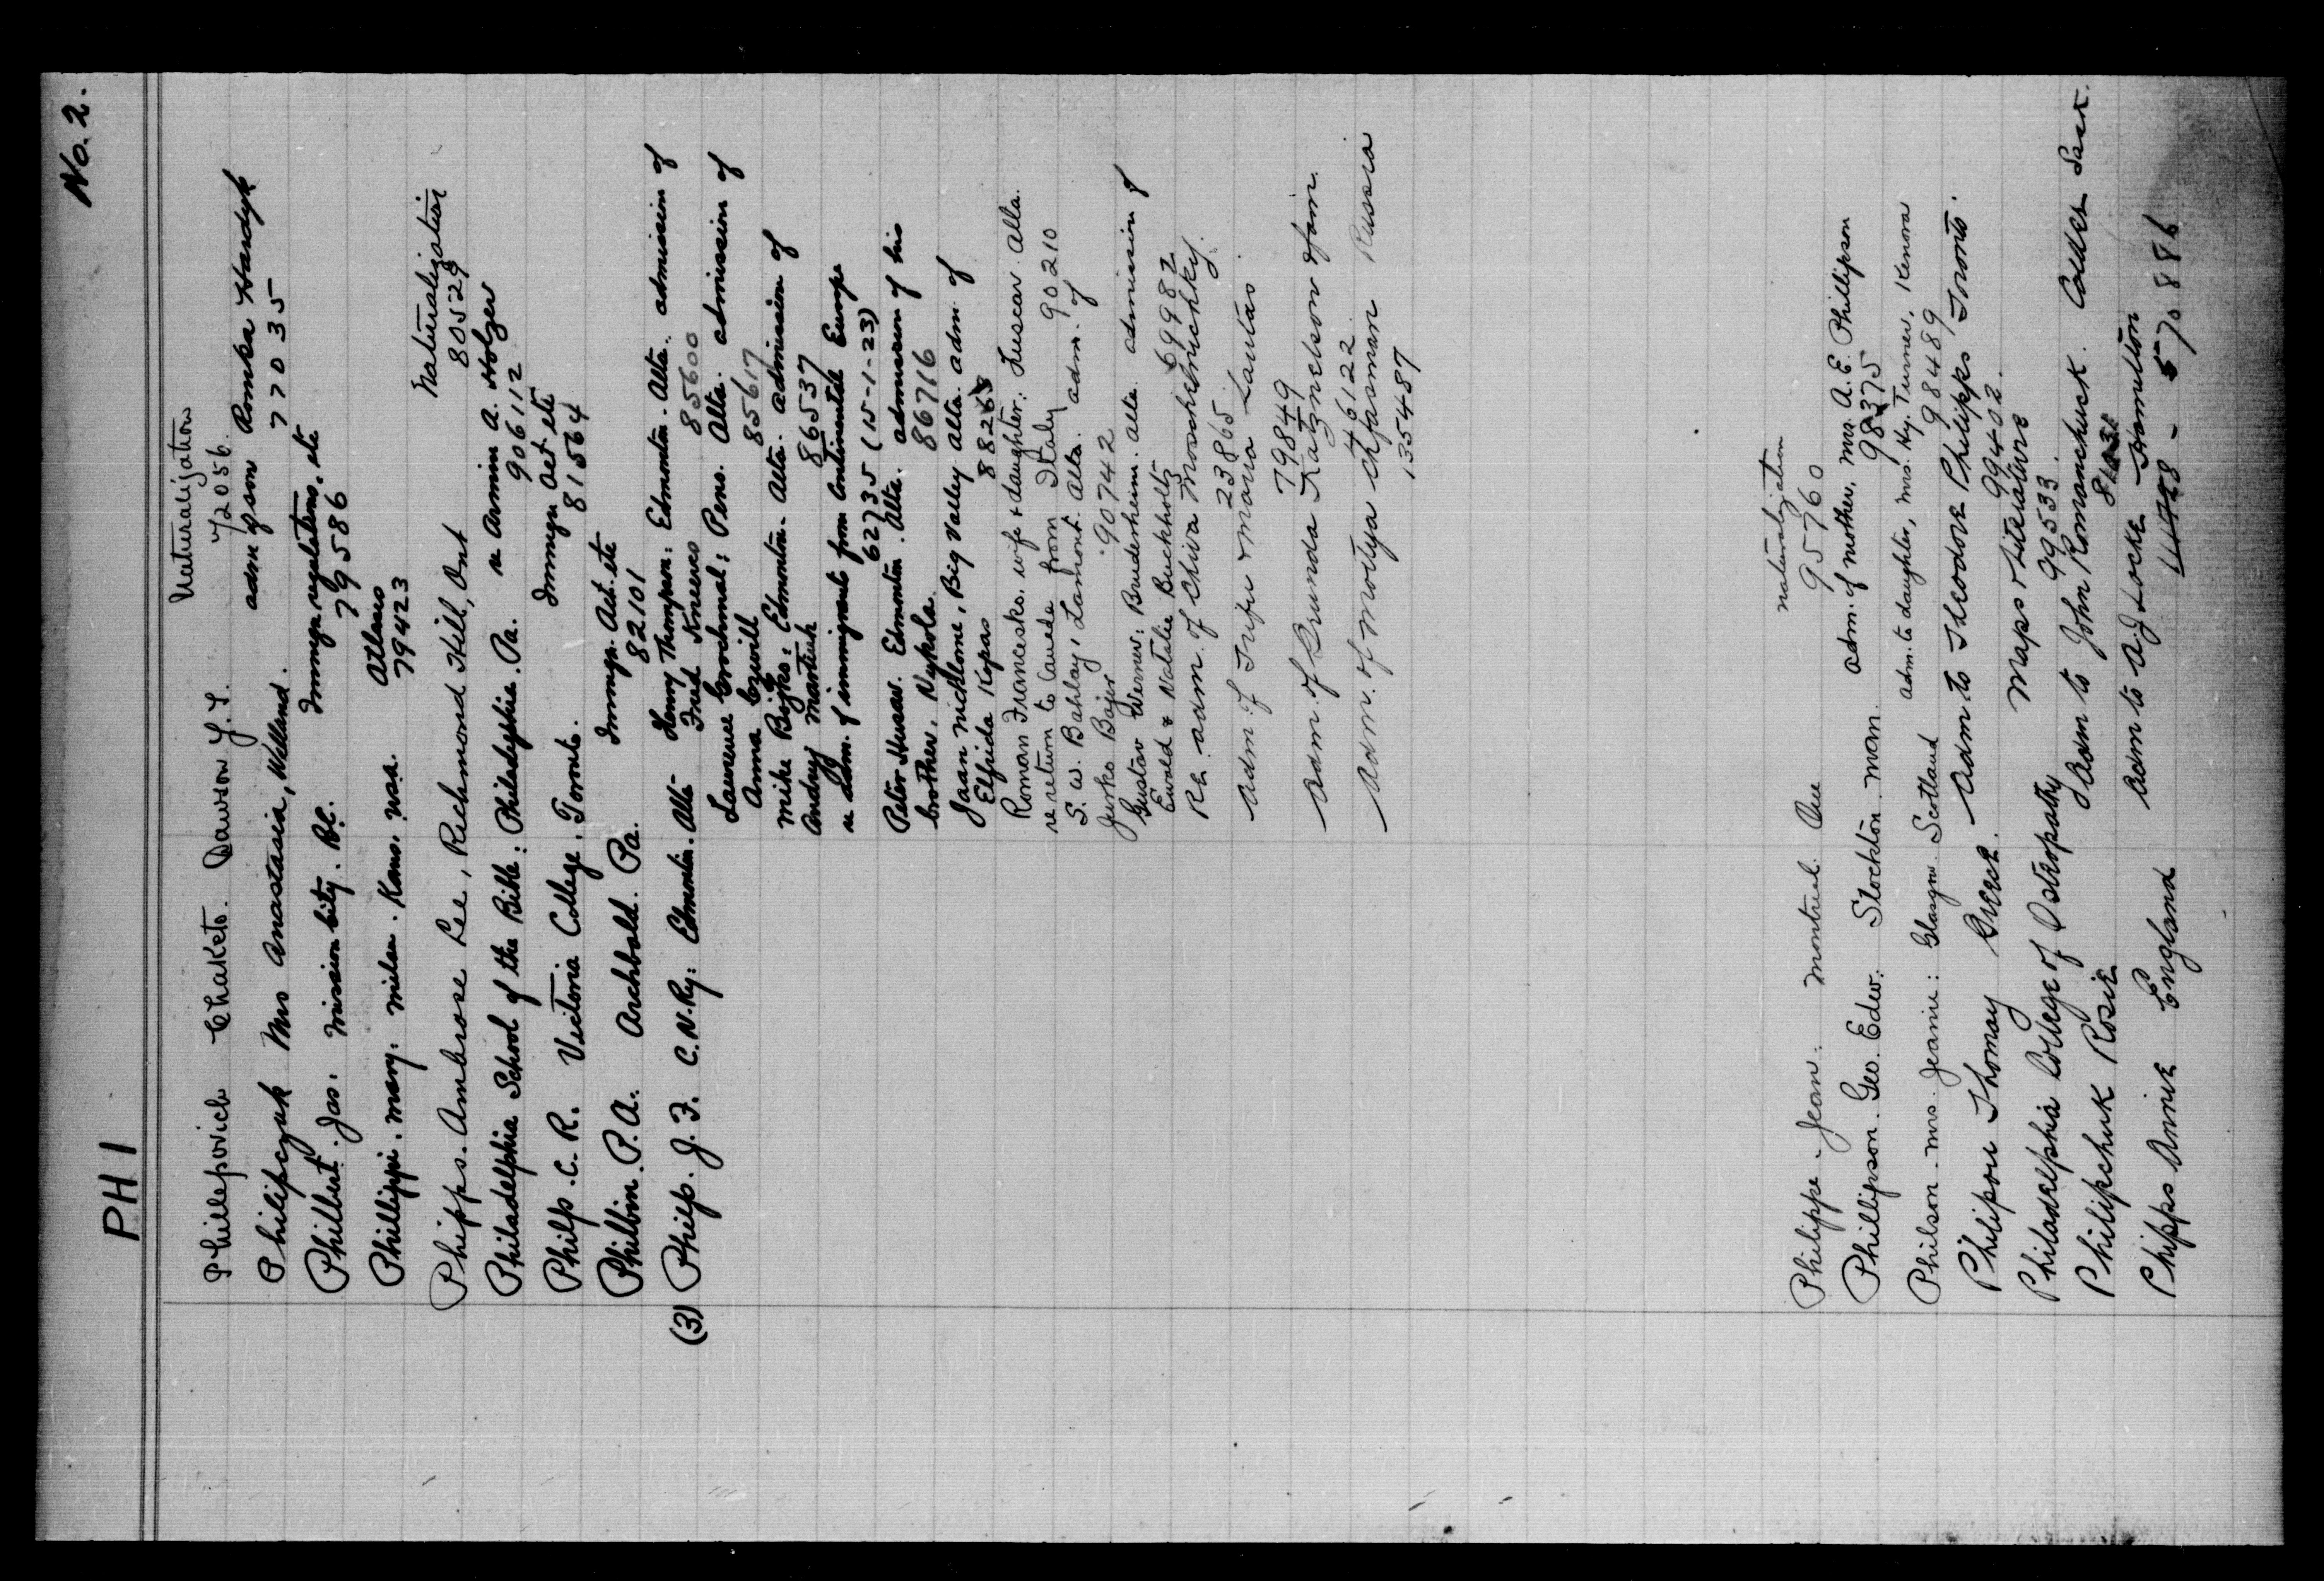 No. 2.
PHI
Phillepovich Chaketo. Dawson Y.T. Naturalization
72056.
Philipczuk Mrs Anastasia, Welland. adm of son Romka Hardyk
77035
Philbert. Jas. Mission City. B.C. Immgn. regulations, etc
79586
Phillippi. Mary. Milan. Kans. USA. Atlases
79423
Phipps. Ambrose Lee, Richmond Hill, Ont Naturalization
80529
Philadelphia School of the Bible: Philadelphia. Pa. re Armin A. Holzer
906112
Philp. C. R. Victoria College. Toronto. Immgn Act etc
81564
Philbin. P. A. Archbald. Pa. Immgn. Act. etc
82101
(3) Philp. J. F. C.N.Ry: Edmonton. Alta- Henry Thompson: Edmonton. Alta. admission of
Fred 85600
Laurence: Pens. Alta. admission of
Anna 85617
Mike Bojko: Edmonton. Alta. admission of
Andruj Martiuk 86537
re adm. of immigrants from Continental Europe
62735 (15-1-23)
Peter Husar. Edmonton. Alta. admission of his
brother, Nykola. 86716
Jaan Nicklone, Big Valley Alta. adm. of
Elfrida 88268
Roman Francesko. wife & daughter: Luscar. Alta.
re return to Canada from Italy 90210
S. W. Bahlay, Lamont. Alta. adm. of
Jurko Bajer 907442
Gustav Werner: Bruderheim. Alta. admission of
Ewald & Natalie Buchholtz 69982
Re adm. of Chiva
23865
adm of & Maria Lautas.
79849
adm. of Brunda Katznelson & fam.
46122
adm. of Motya Chfasman Russia
135487
Philippe. Jean. Montreal. Que Naturalization
95760
Phillipson. Geo. Edw. Stockton. Man. adm. of mother, Mrs. A. E. Phillipson
98375
Philson. Mrs. Jeanie: Glasgow. Scotland adm. to daughter, Mrs. Hy. Turner, Kenora
98489
Philipou Thomay Greece. adm. to Theodore Philipps Toronto.
99402.
Philadelphia College of Osteopathy Maps & Literature
99533.
Philipchuk Rosie adm to John Romanchuck. Calder Sask.
Phipps Annie England adm to A. J Locke Hamilton
570886